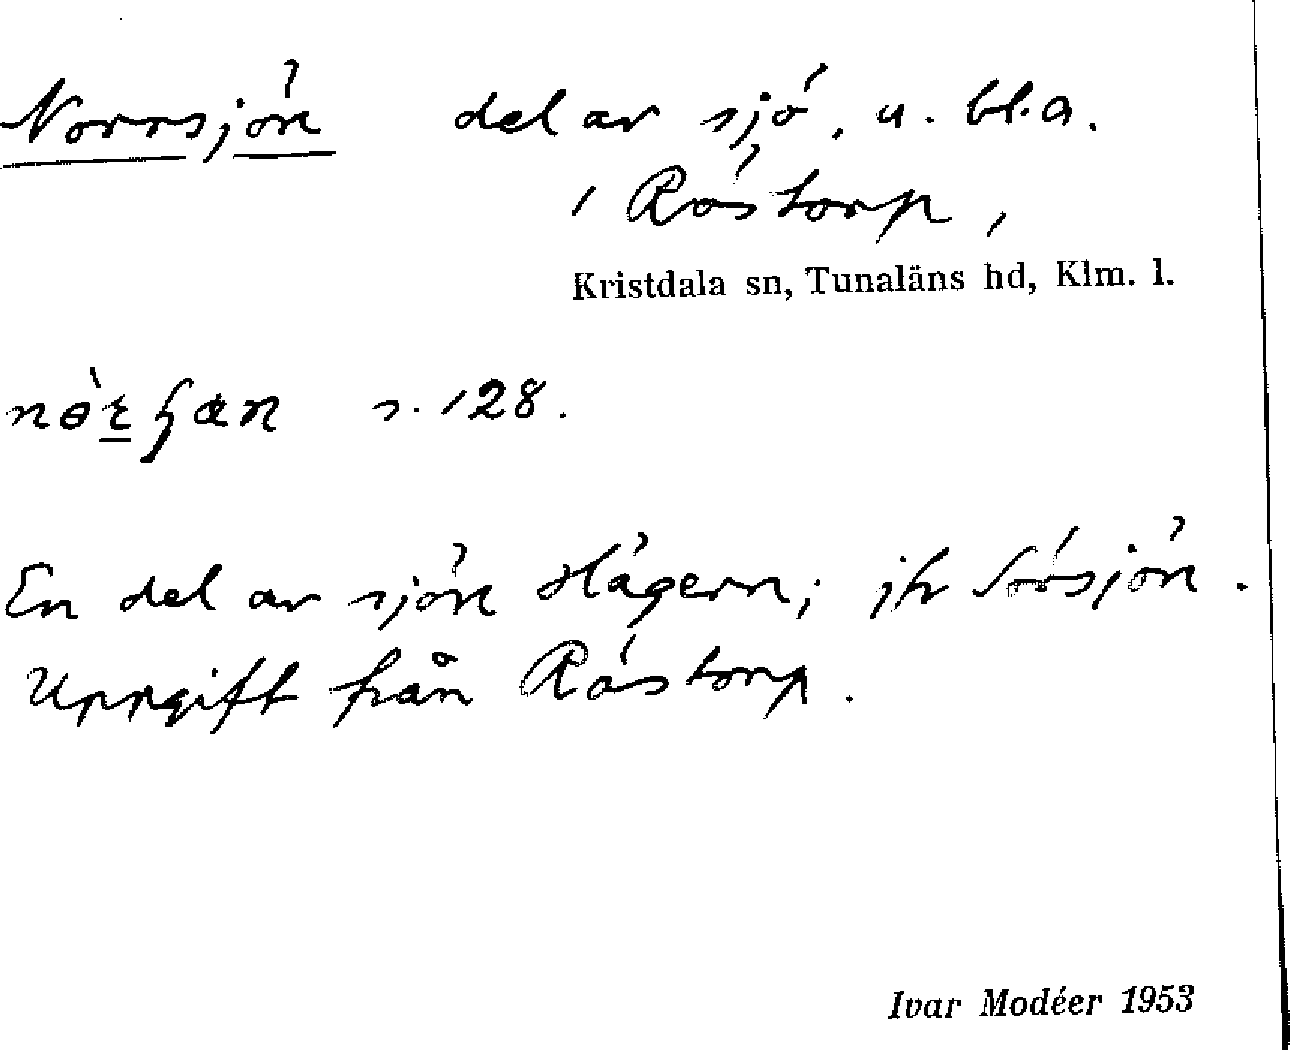 Norrsjön del av sjö, u. bl.a.
i Röstorp,
Kristdala sn, Tunaläns hd, Klm. l.
s. 128.
En del av sjön Hägern; jfr Sörsjön.
Uppgift från Röstorp.
Ivar Modéer 1953